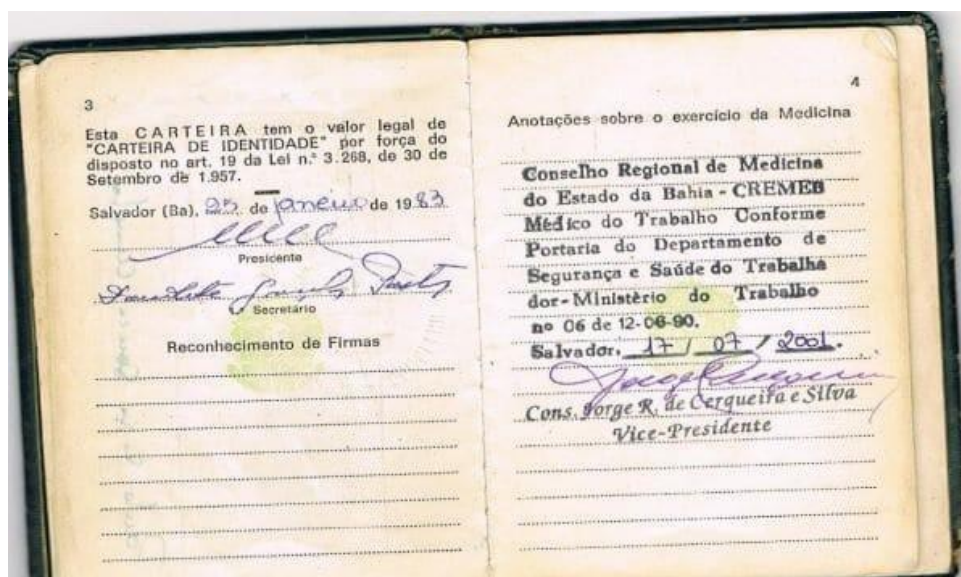 3
Esta CARTEIRA tem o valor legal de
"CARTEIRA DE IDENTIDADE" por força do
disposto no art. 19 da Lei n.º 3.268, de 30 de
Setembro de 1.957.
Salvador (Ba), 25 de janeiro de 1983
Presidente
Secretário
Reconhecimento de Firmas
4
Anotações sobre o exercício da Medicina
Conselho Regional de Medicina
do Estado da Bahia - CREMEB
Médico do Trabalho Conforme
Portaria do Departamento de
Segurança e Saúde do Trabalha
dor - Ministério do Trabalho
nº 06 de 12-06-90.
Salvador, 17 / 07 / 2001.
Cons. Jorge R. de Cerqueira e Silva
Vice-Presidente